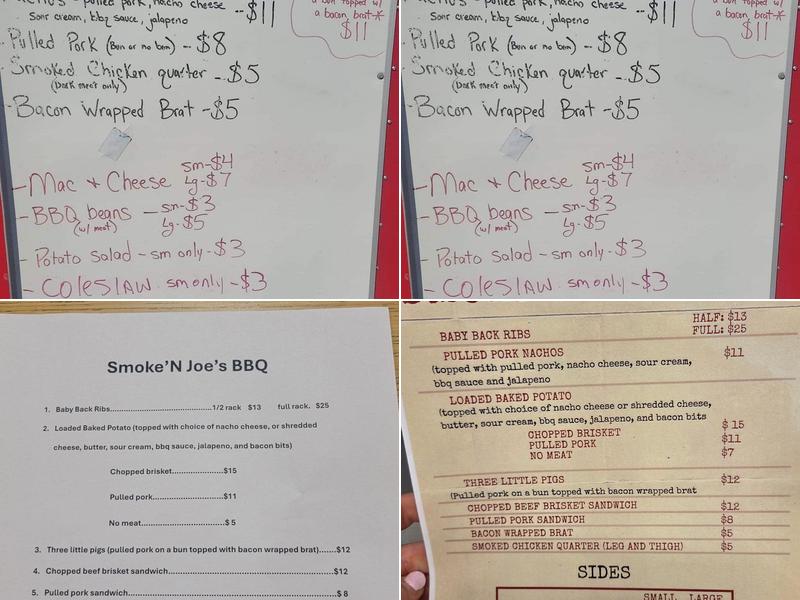 pulled pork, nacho cheese -- $11
Sour cream, bbq sauce, jalapeno
a bun topped w/
a bacon brat*
$11
-Pulled Pork (Bun or no bun) -- $8
-Smoked Chicken quarter -- $5
(Dark meat only)
-Bacon Wrapped Brat - $5
- Mac & Cheese sm-$4
Lg-$7
- BBQ beans - sm-$3
(w/ meat) Lg-$5
- Potato salad - sm only - $3
- Coleslaw sm only - $3
pulled pork, nacho cheese -- $11
Sour cream, bbq sauce, jalapeno
a bun topped w/
a bacon brat*
$11
Pulled Pork (Bun or no bun) -- $8
Smoked Chicken quarter -- $5
(Dark meat only)
-Bacon Wrapped Brat - $5
- Mac & Cheese sm-$4
Lg-$7
- BBQ beans - sm-$3
(w/ meat) Lg-$5
- Potato salad - sm only - $3
- Coleslaw sm only - $3
Smoke'N Joe's BBQ
1. Baby Back Ribs......................................1/2 rack $13 full rack. $25
2. Loaded Baked Potato (topped with choice of nacho cheese, or shredded
cheese, butter, sour cream, bbq sauce, jalapeno, and bacon bits)
Chopped brisket...................$15
Pulled pork...........................$11
No meat................................$ 5
3. Three little pigs (pulled pork on a bun topped with bacon wrapped brat)......$12
4. Chopped beef brisket sandwich..........................................................$12
5. Pulled pork sandwich...........................................................................$ 8
HALF: $13
BABY BACK RIBS FULL: $25
PULLED PORK NACHOS $11
(topped with pulled pork, nacho cheese, sour cream,
bbq sauce and jalapeno
LOADED BAKED POTATO
(topped with choice of nacho cheese or shredded cheese,
butter, sour cream, bbq sauce, jalapeno, and bacon bits
CHOPPED BRISKET $ 15
PULLED PORK $11
NO MEAT $7
THREE LITTLE PIGS $12
(Pulled pork on a bun topped with bacon wrapped brat
CHOPPED BEEF BRISKET SANDWICH $12
PULLED PORK SANDWICH $8
BACON WRAPPED BRAT $5
SMOKED CHICKEN QUARTER (LEG AND THIGH) $5
SIDES
SMALL LARGE